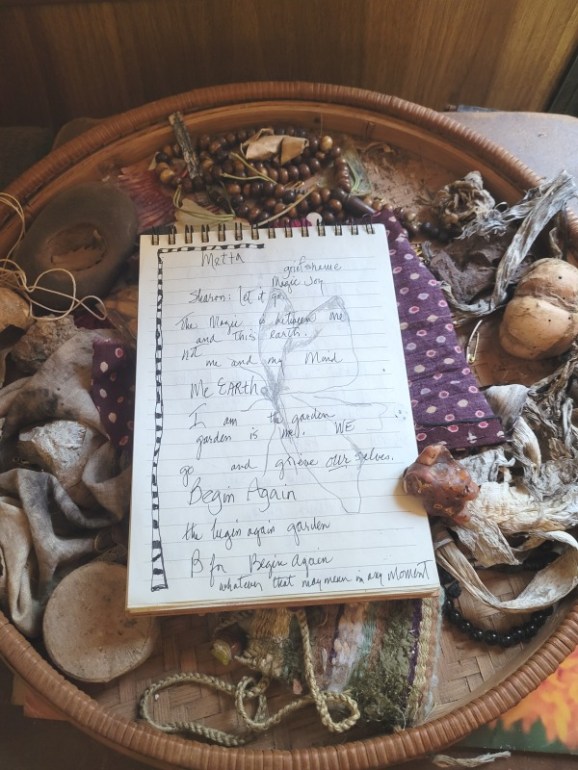 Metta
grief shame
Magic Joy
Sharon: let it go
The Magic is between me
and this earth.
not me and my Mind
Me EARTH
I am the garden
garden is me. WE
go and grieve our selves.
Begin Again
the begin again garden
B for Begin Again
whatever that may mean in any Moment